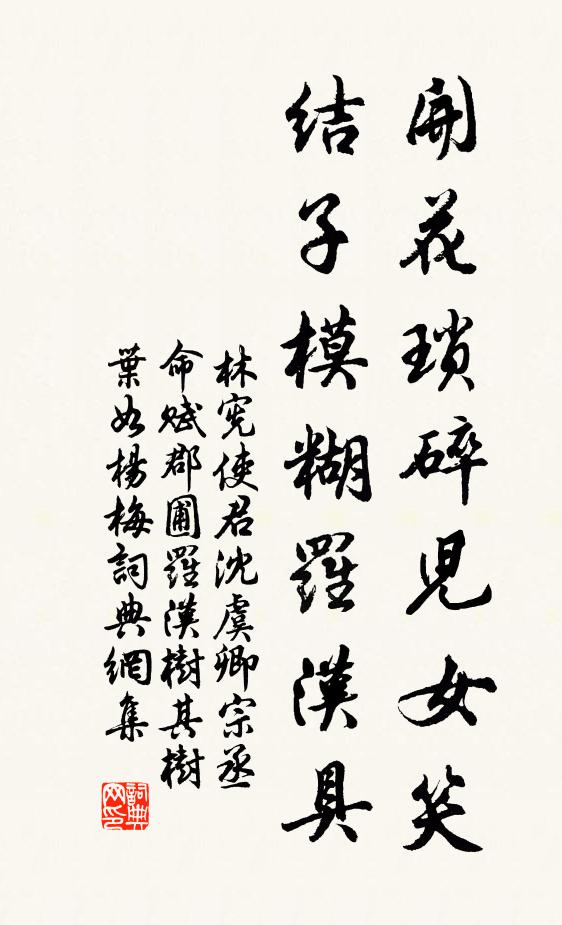 開花瑣碎兒女笑
結子模糊羅漢具
林寃使君沈虞卿宗丞
命賦郡圃羅漢樹其樹
葉如楊梅詞典網集
詞典网印